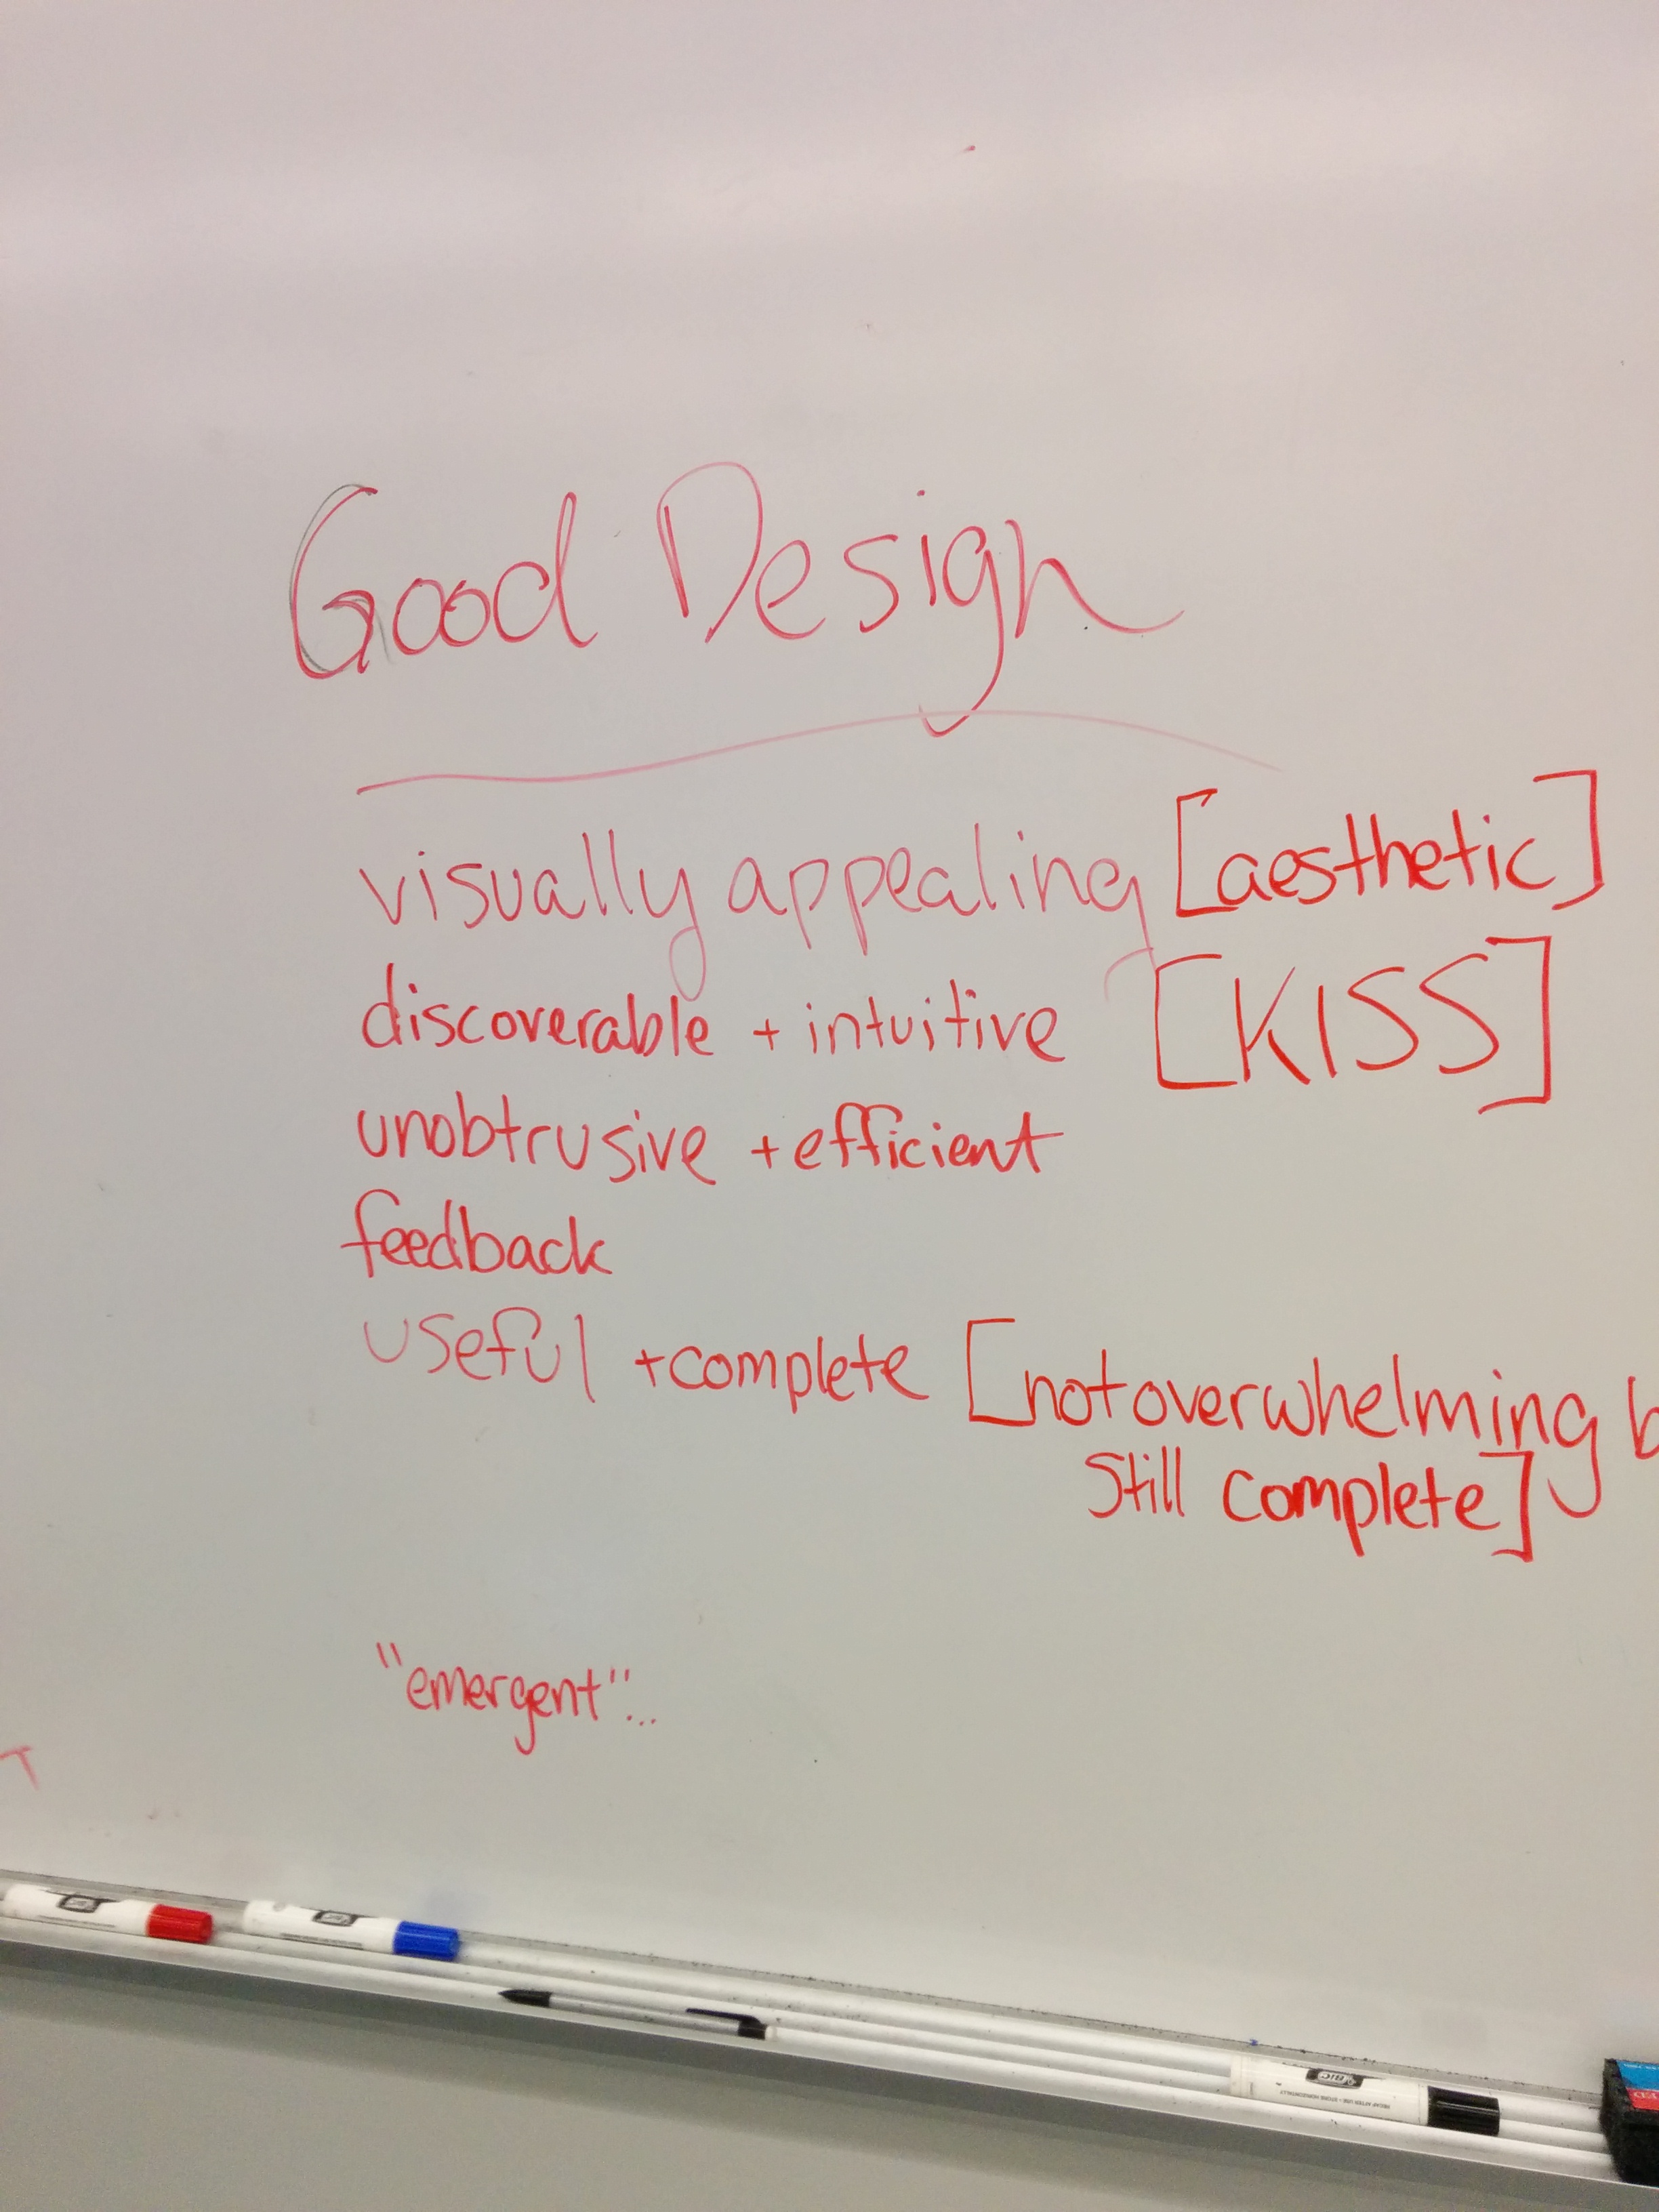 Good Design
visually appealing [aesthetic]
discoverable + intuitive [KISS]
unobtrusive + efficient
feedback
useful + complete [not overwhelming b
Still complete]
"emergent"...
BIC